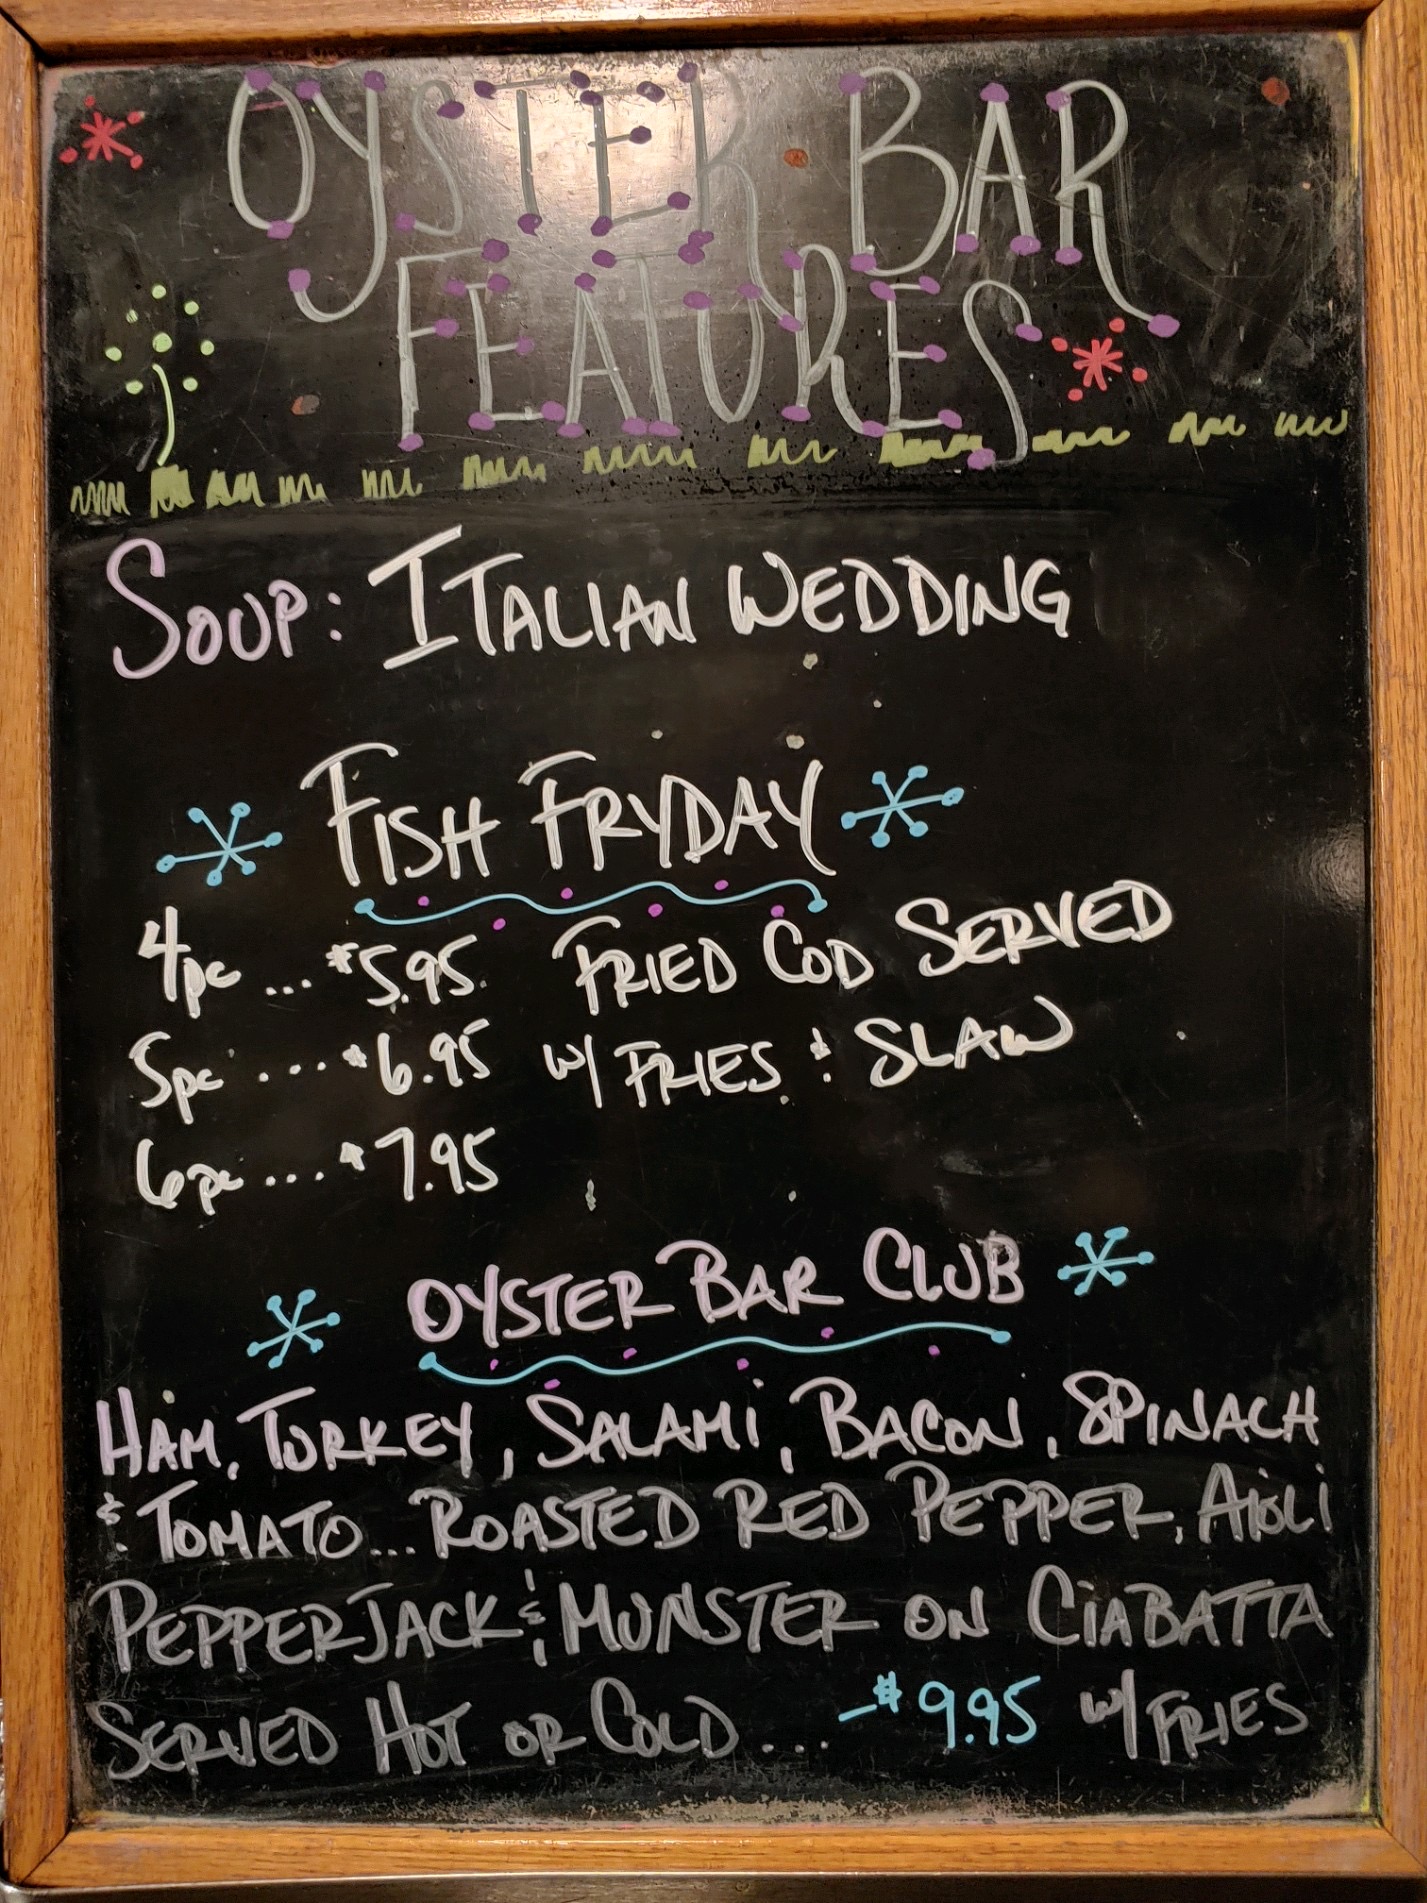 OYSTER BAR
FEATURES
SOUP: ITALIAN WEDDING
FISH FRYDAY
4pc ... $5.95. FRIED COD SERVED
5pc .... $6.95 w/ FRIES & SLAW
6pc .... $7.95
OYSTER BAR CLUB
HAM, TURKEY, SALAMI, BACON, SPINACH
& TOMATO... ROASTED RED PEPPER, AIOLI
PEPPERJACK & MUNSTER ON CIABATTA
SERVED HOT OR COLD .... -$9.95 w/ FRIES